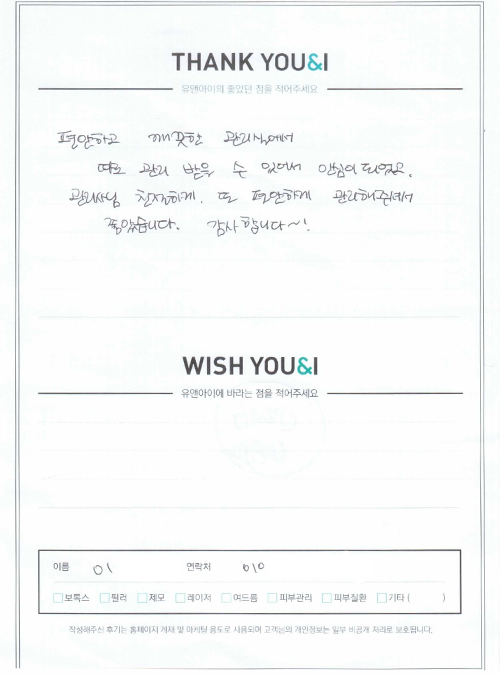 THANK YOU&I
유앤아이의 좋았던 점을 적어주세요
편안하고 깨끗한 관리실에서
따로 관리 받을 수 있어서 안심이 되었고,
관리사님 친절하게, 또 편안하게 관리해주셔서
좋았습니다. 감사합니다~!
WISH YOU&I
유앤아이에 바라는 점을 적어주세요
이름 이 연락처 010
보톡스 필러 제모 레이저 여드름 피부관리 피부질환 기타 ( )
작성해주신 후기는 홈페이지 게재 및 마케팅 용도로 사용되며 고객님의 개인정보는 일부 비공개 처리로 보호됩니다.